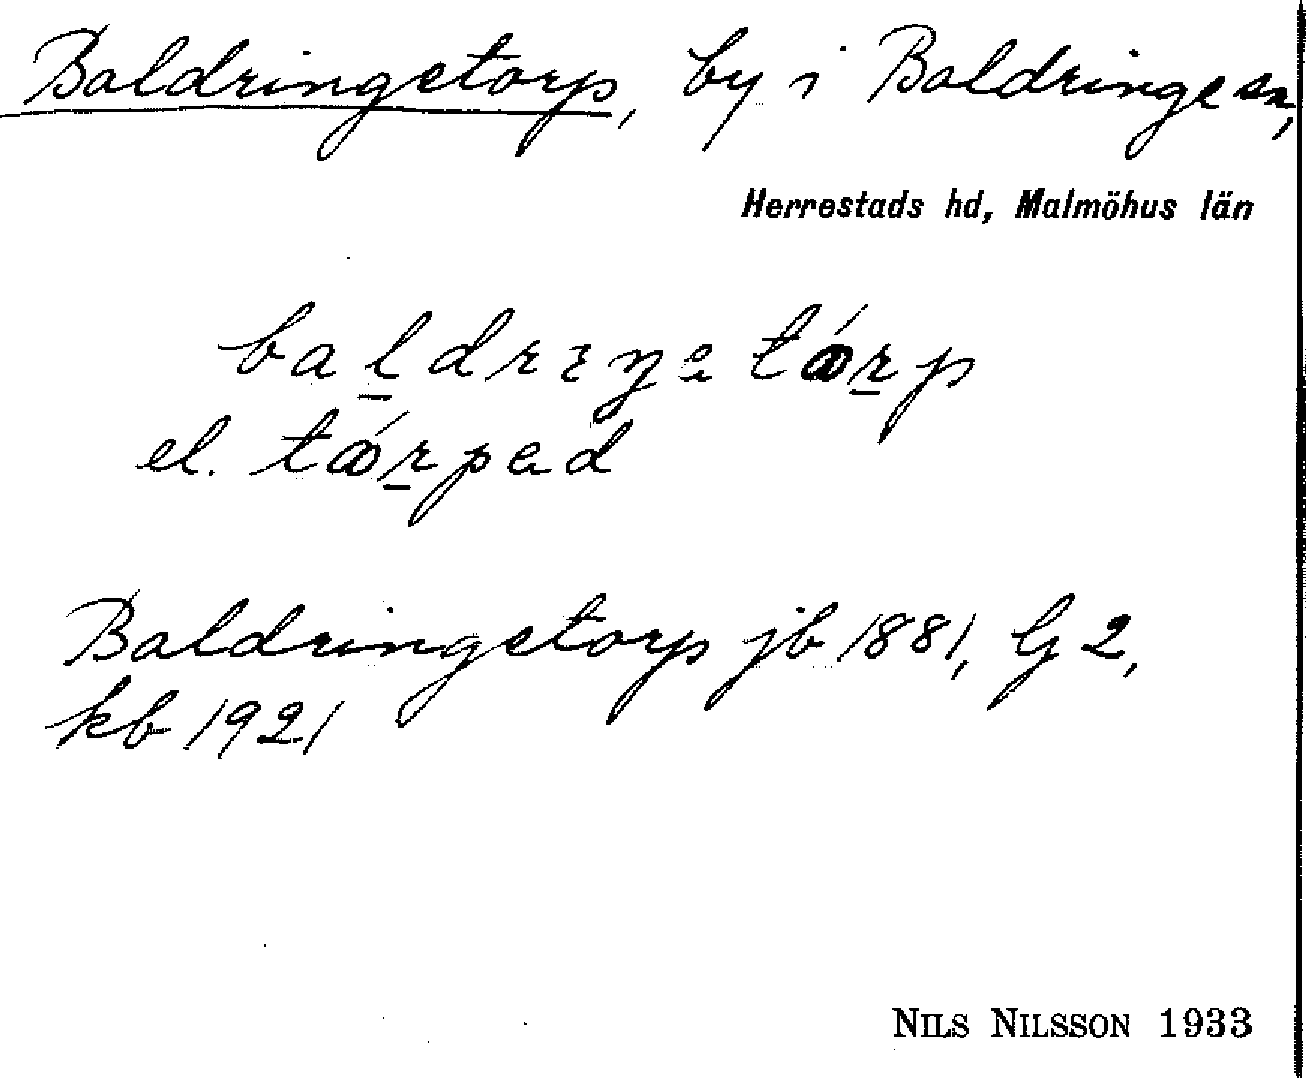 Baldringetorp, by i Baldringe sn,
Herrestads hd, Malmöhus län
bal̠drɪŋə tǿr̠p
el. tǿr̠pəd
Baldringetorp jb 1881, G 2,
kb 1921
NILS NILSSON 1933